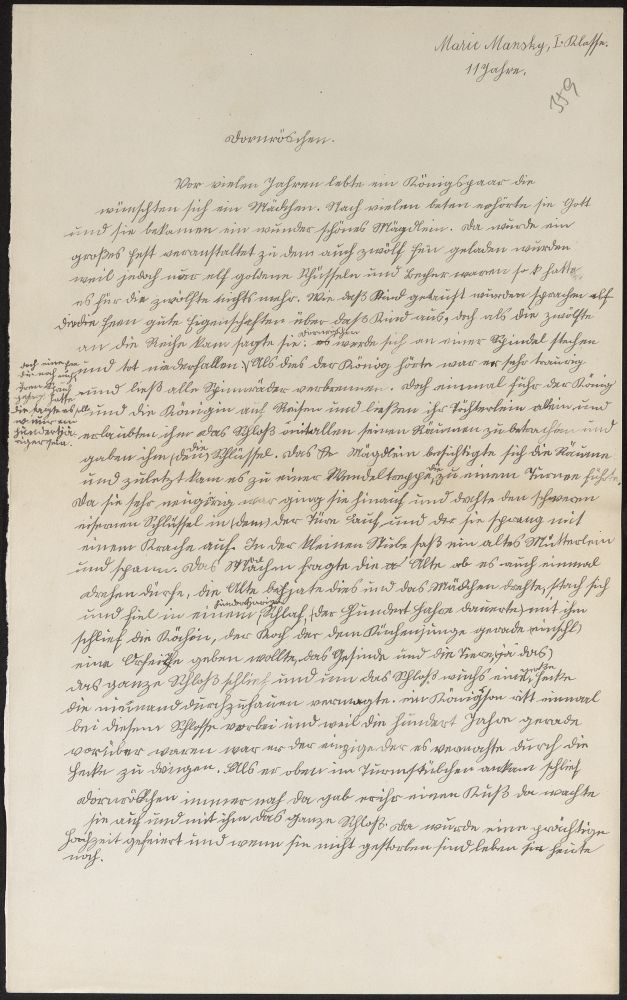 Marie Mansky, I. Klasse.
11 Jahre.
359
Dornröschen.
Vor vielen Jahren lebte ein Königspaar die
wünschten sich ein Mädchen. Nach vielen beten erhörte sie Gott
und sie bekamen ein wunder schönes Mägdlein. Da wurde ein
großes Fest veranstaltet zu dem auch zwölf Feen geladen wurden
weil jedoch nur elf goldene Schüsseln und Becher waren so hatte
es für die zwölfte nichts mehr. Wie daß Kind getauft wurden sprachen elf
Feen gute Eigenschaften über daß Kind aus, doch als die zwölfte
an die Reihe kam sagte sie: Dornröschen werde sich an einer Spindel stechen
und tot niederfallen. Als dies der König hörte war er sehr traurig
und ließ alle Spinnräder verbrennen. Doch einmal fuhr der König
und die Königin auf Reisen und ließen ihr Töchterlein allein und
erlaubten ihm das Schloß mit allen seinen Räumen zu betrachten und
gaben ihm (den) die Schlüssel. Das Mägdlein besichtigte sich die Räume
und zuletzt kam es zu einer Wendeltreppe, die zu einem Turme führte.
Da sie sehr neugirig war ging sie hinauf und drehte den schweren
eisernen Schlüssel in (dem) der Türe auf und der sie sprang mit
einem Krache auf. In der kleinen Stube saß ein altes Mütterlein
und spann. Das Mädchen fragte die Alte ob es auch einmal
drehen dürfe, die Alte bejate dies und das Mädchen drehte, stach sich
und fiel in einen hundertjärigen Schlaf, (der hundert Jahre dauerte) mit ihm
schlief die Köchin, der Koch der dem Küchenjunge gerade (einschl)
eine Orfeige geben wollte, das Gesinde und die Tiere, (ja das)
das ganze Schloß schlief und um das Schloß wuchs eine große Hecke
die niemand durchzuhauen vermagte. ein Königson ritt einmal
bei diesem Schlosse vorbei und weil die hundert Jahre gerade
vorüber waren war er der einzige der es vermochte durch die
Hecke zu dringen. Als er oben im Turmstübchen ankam schlief
Dornröschen immer noch da gab er ihr einen Kuß da wachte
sie auf und mit ihm das ganze Schloß. Da wurde eine prächtige
Hochzeit gefeiert und wenn sie nicht gestorben sind leben sie heute
noch.